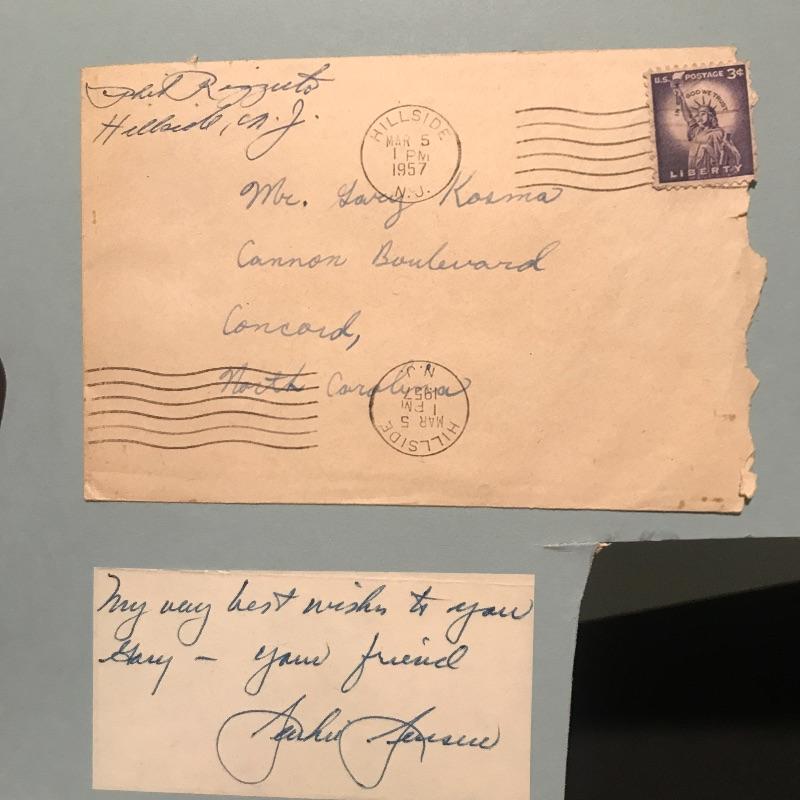 Phil Rizzuto
Hillside, N.J.
U.S. POSTAGE 3¢
IN GOD WE TRUST
LIBERTY
HILLSIDE
MAR 5
1 PM
1957
N.J.
Mr. Gary Kosma
Cannon Boulevard
Concord,
North Carolina
HILLSIDE
MAR 5
1 PM
1957
N.J.
My very best wishes to you
Gary – your friend
Jackie Jensen